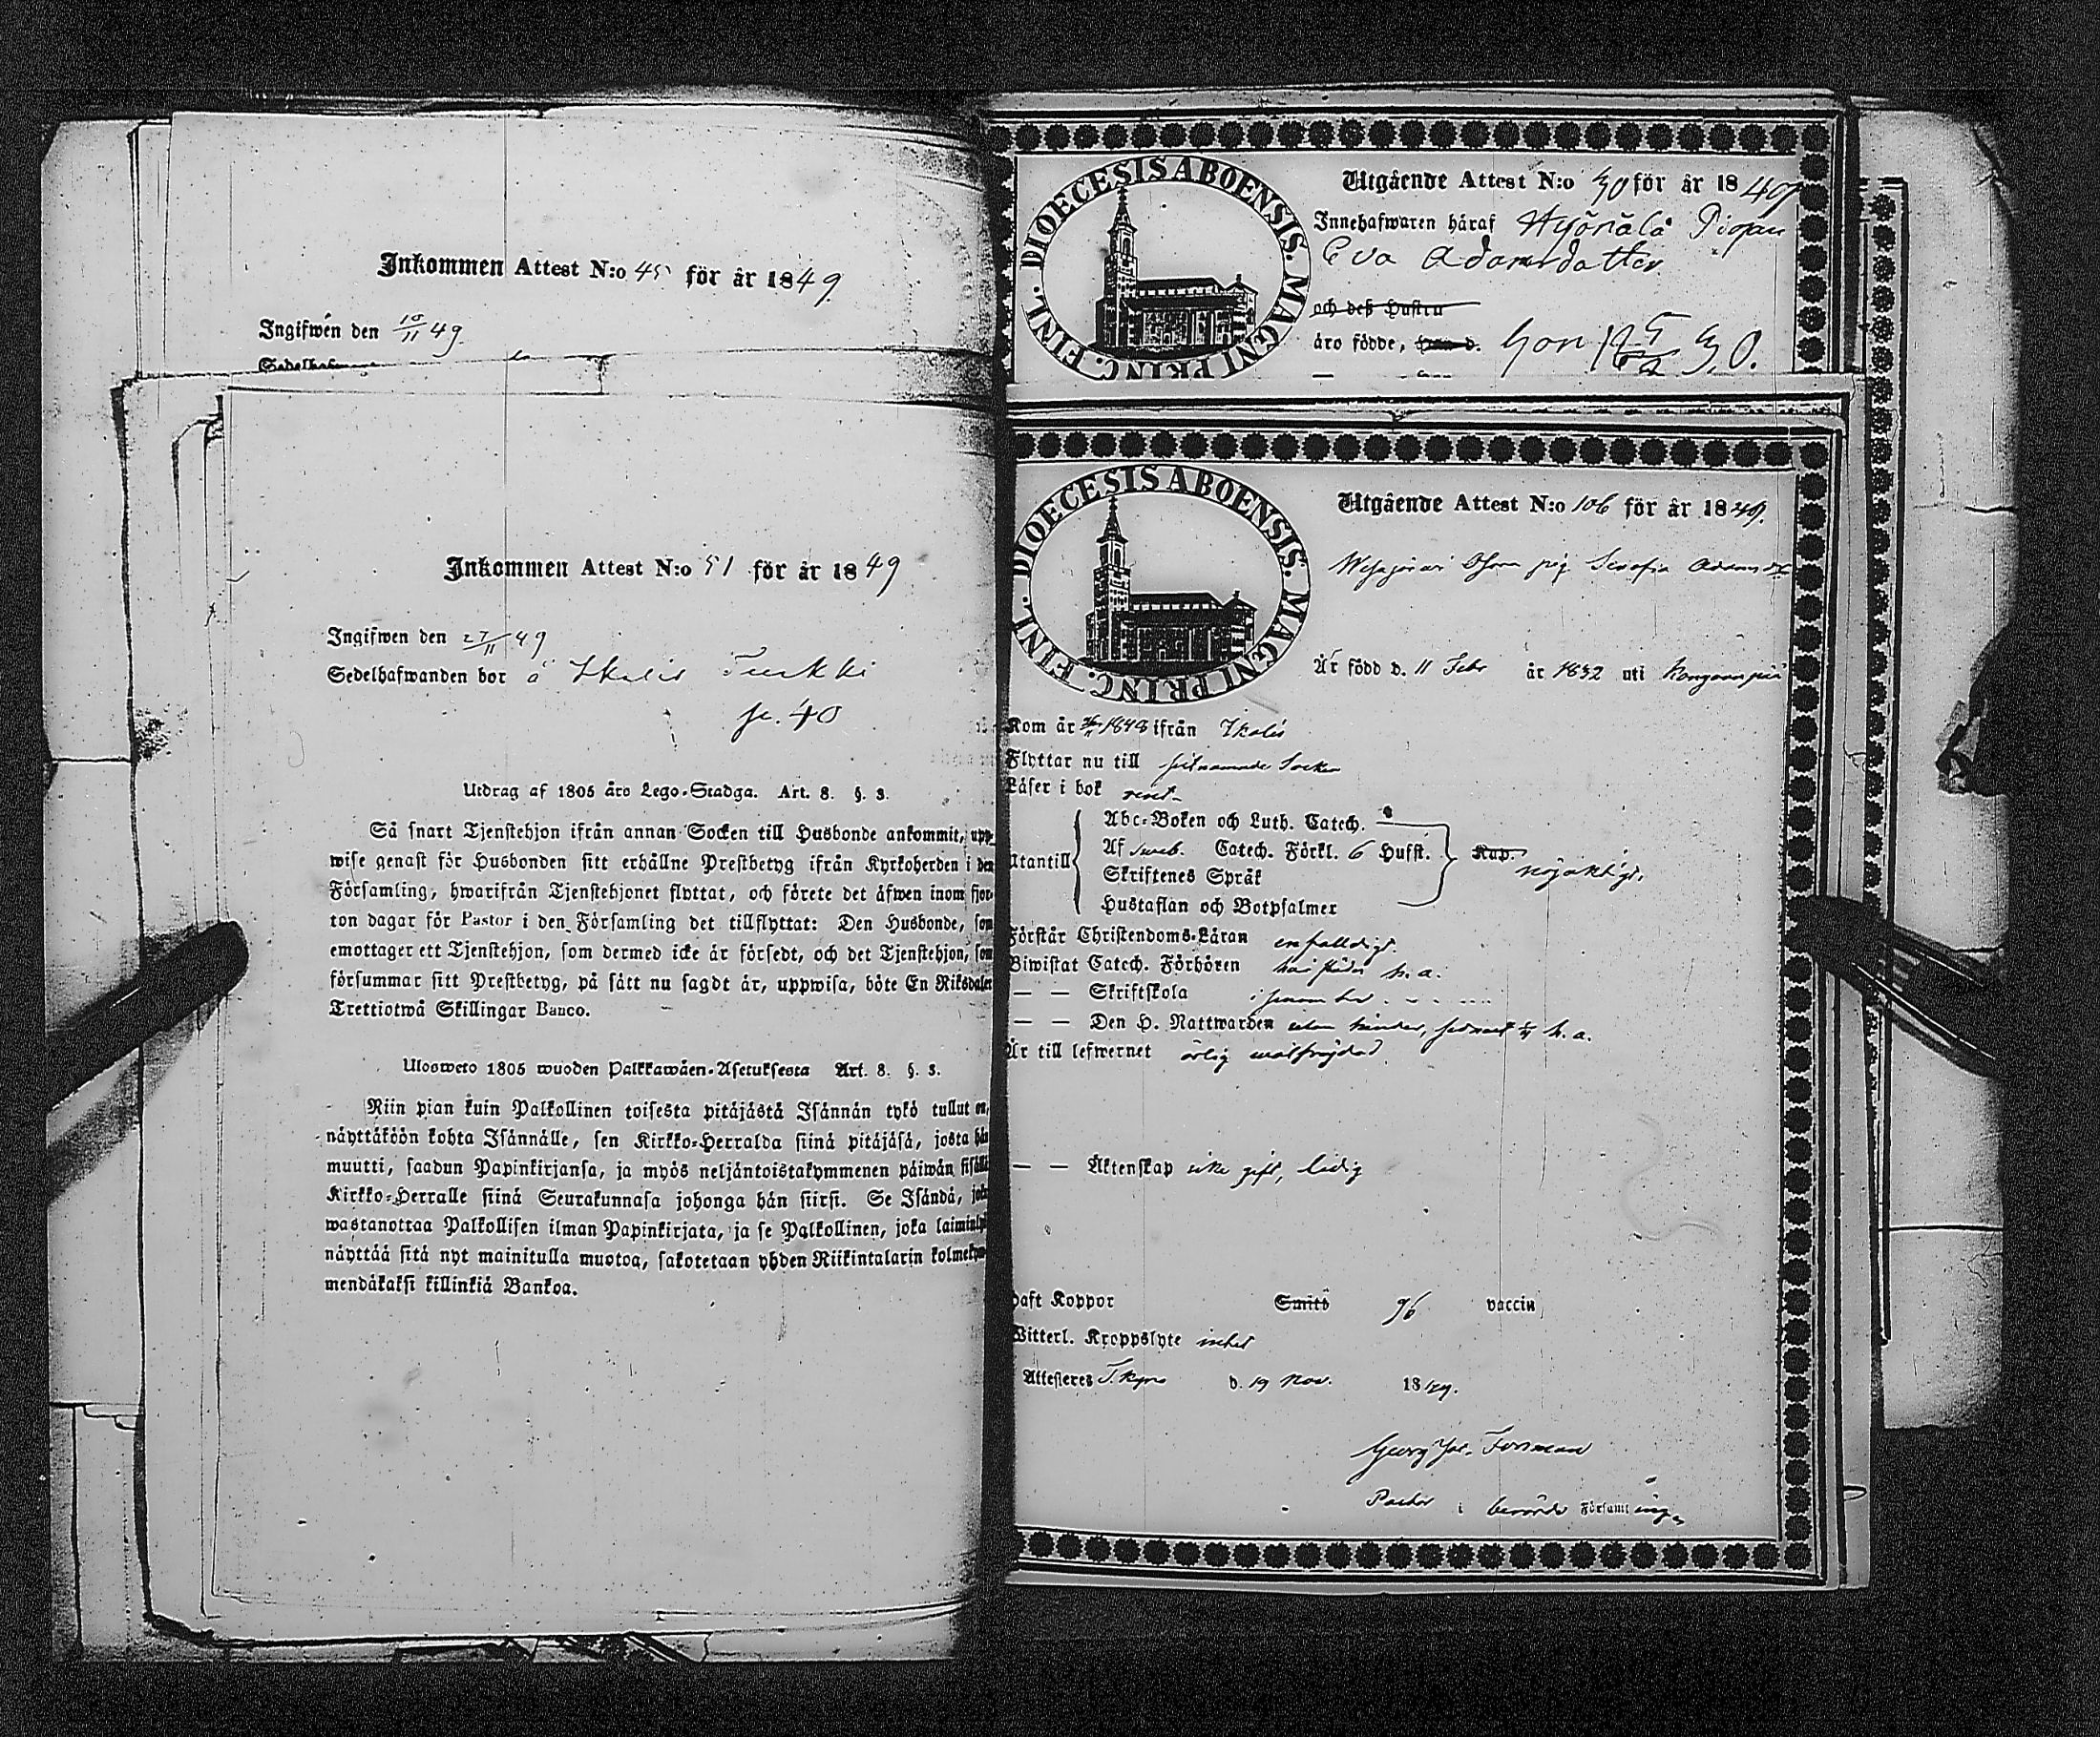 Inkommen Attest N:o 45 för år 1849.
Ingifwen den 10/11 49.
Inkommen Attest N:o 51 för år 1849
Ingifwen den 27/11 49
Sedelhafwanden bor å Ikalis Turkki
40
Utdrag af 1805 års Lego-Stadga. Art. 8. §. 3.
Så snart Tjenstehjon ifrån annan Socken till Husbonde ankommit, upp-
wise genast för Husbonden sitt erhållne Prestbetyg ifrån Kyrkoherden i den
Församling, hwarifrån Tjenstehjonet flyttat, och förete det äfwen inom fjor-
ton dagar för Pastor i den Församling det tillflyttat: Den Husbonde, som
emottager ett Tjenstehjon, som dermed icke är försedt, och det Tjenstehjon, som
försummar sitt Prestbetyg, på sätt nu sagdt är, uppwisa, böte En Riksdaler
Trettiotwå Skillingar Banco.
Ulosweto 1805 wuoden Palkkawäen-Asetuksesta Art. 8. §. 3.
Niin pian kuin Palkollinen toisesta pitäjästä Isännän tykö tullut on,
näyttäköön kohta Isännälle, sen Kirkko-Herralda siinä pitäjäsä, josta hän
muutti, saadun Papinkirjansa, ja myös neljäntoistakymmenen päiwän sisällä
Kirkko-Herralle siinä Seurakunnasa johonga hän siirsi. Se Isändä, joka
wastanottaa Palkollisen ilman Papinkirjata, ja se Palkollinen, joka laiminlyö
näyttää sitä nyt mainitulla muotoa, sakotetaan yhden Riikintalarin kolmekym-
mendäkaksi killinkiä Bankoa.
DIOECESIS ABOENSIS. MAGNI PRINC. FINL.
Utgående Attest N:o 30 för år 1849
Innehafwaren häraf Pigan
Eva Adamsdotter
och deß Hustru
äro födde, hon 30.
DIOECESIS ABOENSIS. MAGNI PRINC. FINL.
Utgående Attest N:o 106 för år 1849.
pig. Serafia Adamsdr
Är född d. 11 Febr år 1832 uti Kangaanpää
Kom år 1848 ifrån Ikalis
Flyttar nu till Socken
Läser i bok rent
Utantill
Abc-Boken och Luth. Catech.
Af Sweb. Catech. Förkl. 6 Hufst.
Skriftenes Språk
Hustaflan och Botpsalmer
Kap.
nöjaktigt.
Förstår Christendoms-Läran enfaldigt.
Biwistat Catech. Förhören h. a.
— — Skriftskola
— — Den H. Nattwarden utan hinder, h. a.
Är till lefwernet ärlig wälfrejdad
— — Äktenskap icke gift, ledig
Haft Koppor Smitt vaccin
Witterl. Kroppslyte intet
Attesteres T. Kyro d. 19 Nov. 1849.
Georg Jac. Forsman
Pastor i berörde Församlingen